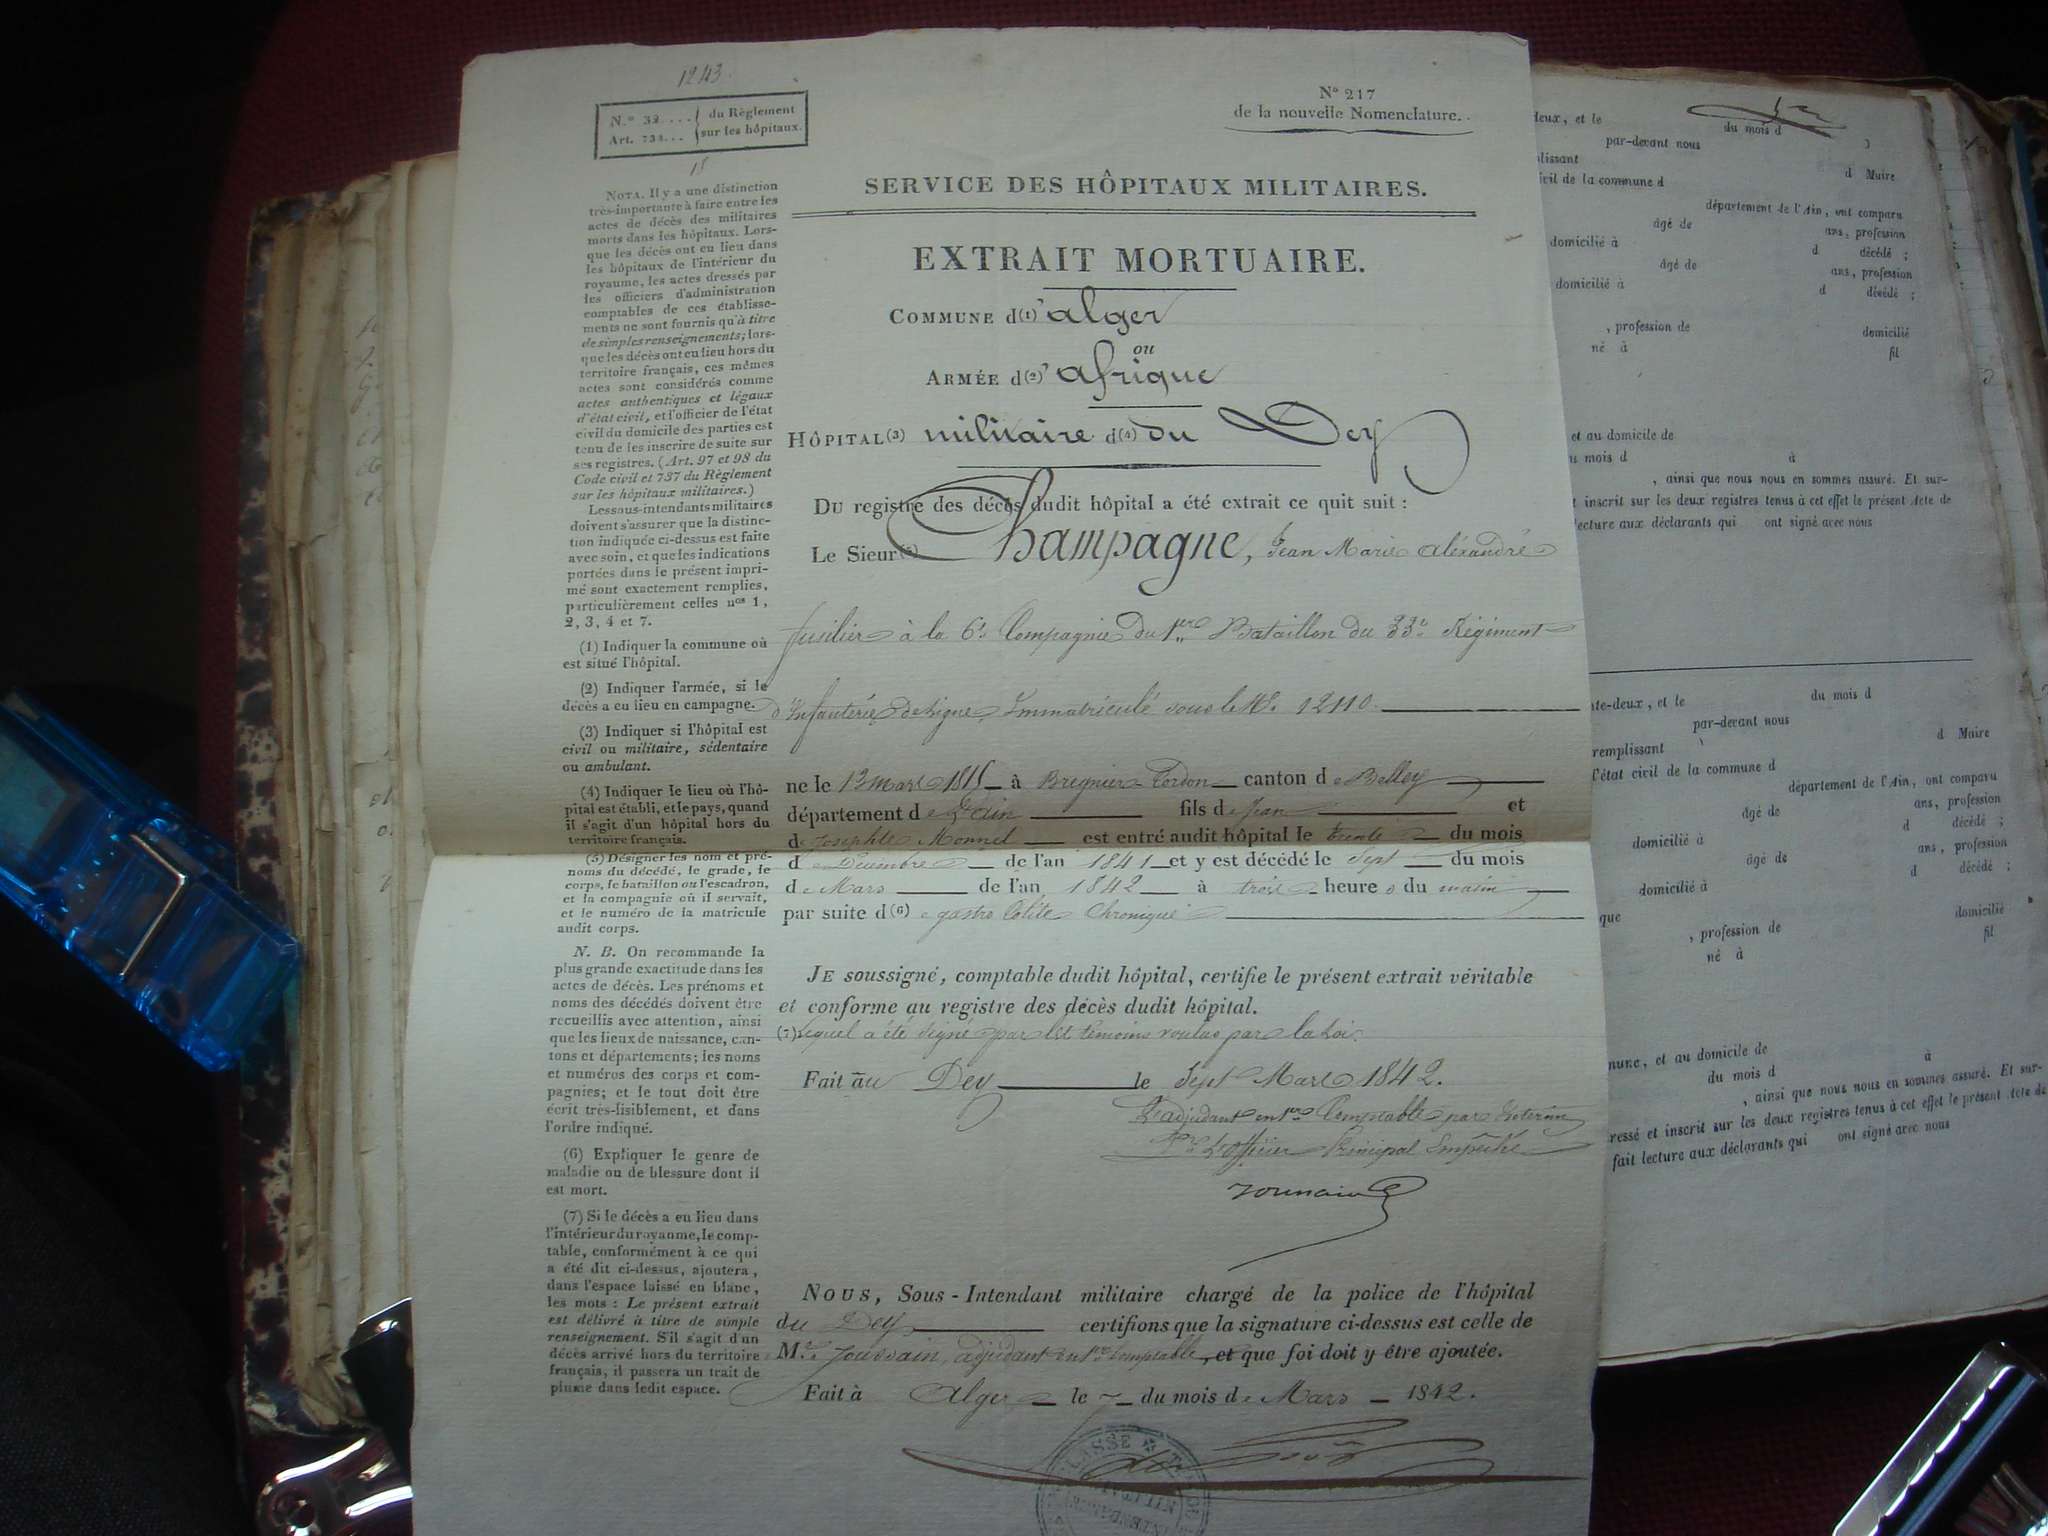 1243.
N.º 32.... du Règlement
Art. 733... sur les hôpitaux.
Nº 217
de la nouvelle Nomenclature.
SERVICE DES HÔPITAUX MILITAIRES.
EXTRAIT MORTUAIRE.
COMMUNE d(1)' alger
ou
ARMÉE d(2)' afrique
HÔPITAL(3) militaire d(4) du Dey
DU registre des décès dudit hôpital a été extrait ce quit suit :
Le Sieur(5) Champagne, Jean Marie aléxandre
fusilier à la 6e Compagnie du 1er Bataillon du 33e Régiment
d'Infanterie de ligne, Immatriculé sous le Nº 12110.
ne le 13 Mars 1815 à Bregnier-Cordon canton de Belley
département de L'ain fils de Jean et
de Josephte Monnet est entré audit hôpital le trente du mois
de Décembre de l'an 1841 et y est décédé le Sept du mois
de Mars de l'an 1842 à trois heures du matin
par suite d(6) e gastro Colite Chronique
JE soussigné, comptable dudit hôpital, certifie le présent extrait véritable
et conforme au registre des décès dudit hôpital.
(7) Lequel a été signé par les témoins voulus par la Loi.
Fait au Dey le Sept Mars 1842.
L'adjudant en 1er Comptable par Interim
Pr L'officier Principal Empêché
Jouvain
NOUS, Sous-Intendant militaire chargé de la police de l'hôpital
du Dey certifions que la signature ci-dessus est celle de
M.r Jouvain, adjudant en 1er Comptable, et que foi doit y être ajoutée.
Fait à Alger le 7 du mois de Mars 1842.
NOTA. Il y a une distinction
très-importante à faire entre les
actes de décès des militaires
morts dans les hôpitaux. Lors-
que les décès ont eu lieu dans
les hôpitaux de l'intérieur du
royaume, les actes dressés par
les officiers d'administration
comptables de ces établisse-
ments ne sont fournis qu'à titre
de simples renseignements; lors-
que les décès ont eu lieu hors du
territoire français, ces mêmes
actes sont considérés comme
actes authentiques et légaux
d'état civil, et l'officier de l'état
civil du domicile des parties est
tenu de les inscrire de suite sur
ses registres. (Art. 97 et 98 du
Code civil et 737 du Règlement
sur les hôpitaux militaires.)
Les sous-intendants militaires
doivent s'assurer que la distinc-
tion indiquée ci-dessus est faite
avec soin, et que les indications
portées dans le présent impri-
mé sont exactement remplies,
particulièrement celles nos 1,
2, 3, 4 et 7.
(1) Indiquer la commune où
est situé l'hôpital.
(2) Indiquer l'armée, si le
décès a eu lieu en campagne.
(3) Indiquer si l'hôpital est
civil ou militaire, sédentaire
ou ambulant.
(4) Indiquer le lieu où l'hô-
pital est établi, et le pays, quand
il s'agit d'un hôpital hors du
territoire français.
(5) Désigner les nom et pré-
noms du décédé, le grade, le
corps, le bataillon ou l'escadron,
et la compagnie où il servait,
et le numéro de la matricule
audit corps.
N. B. On recommande la
plus grande exactitude dans les
actes de décès. Les prénoms et
noms des décédés doivent être
recueillis avec attention, ainsi
que les lieux de naissance, can-
tons et départements; les noms
et numéros des corps et com-
pagnies; et le tout doit être
écrit très-lisiblement, et dans
l'ordre indiqué.
(6) Expliquer le genre de
maladie ou de blessure dont il
est mort.
(7) Si le décès a eu lieu dans
l'intérieur du royaume, le comp-
table, conformément à ce qui
a été dit ci-dessus, ajoutera,
dans l'espace laissé en blanc,
les mots : Le présent extrait
est délivré à titre de simple
renseignement. S'il s'agit d'un
décès arrivé hors du territoire
français, il passera un trait de
plume dans ledit espace.
deux, et le du mois d
par-devant nous
d Maire
civil de la commune d
département de l'Ain, ont comparu
âgé de ans, profession
domicilié à d décédé ;
âgé de ans, profession
domicilié à d décédé ;
, profession de domicilié
né à fil
et au domicile de
du mois d à
, ainsi que nous nous en sommes assuré. Et sur-
inscrit sur les deux registres tenus à cet effet le présent Acte de
lecture aux déclarants qui ont signé avec nous
nte-deux, et le du mois d
par-devant nous
remplissant d Maire
l'état civil de la commune d
département de l'Ain, ont comparu
âgé de ans, profession
domicilié à d décédé ;
âgé de ans, profession
domicilié à d décédé ;
que domicilié
, profession de fil
né à
mune, et au domicile de
du mois d à
, ainsi que nous nous en sommes assuré. Et sur-
ressé et inscrit sur les deux registres tenus à cet effet le présent Acte de
fait lecture aux déclarants qui ont signé avec nous